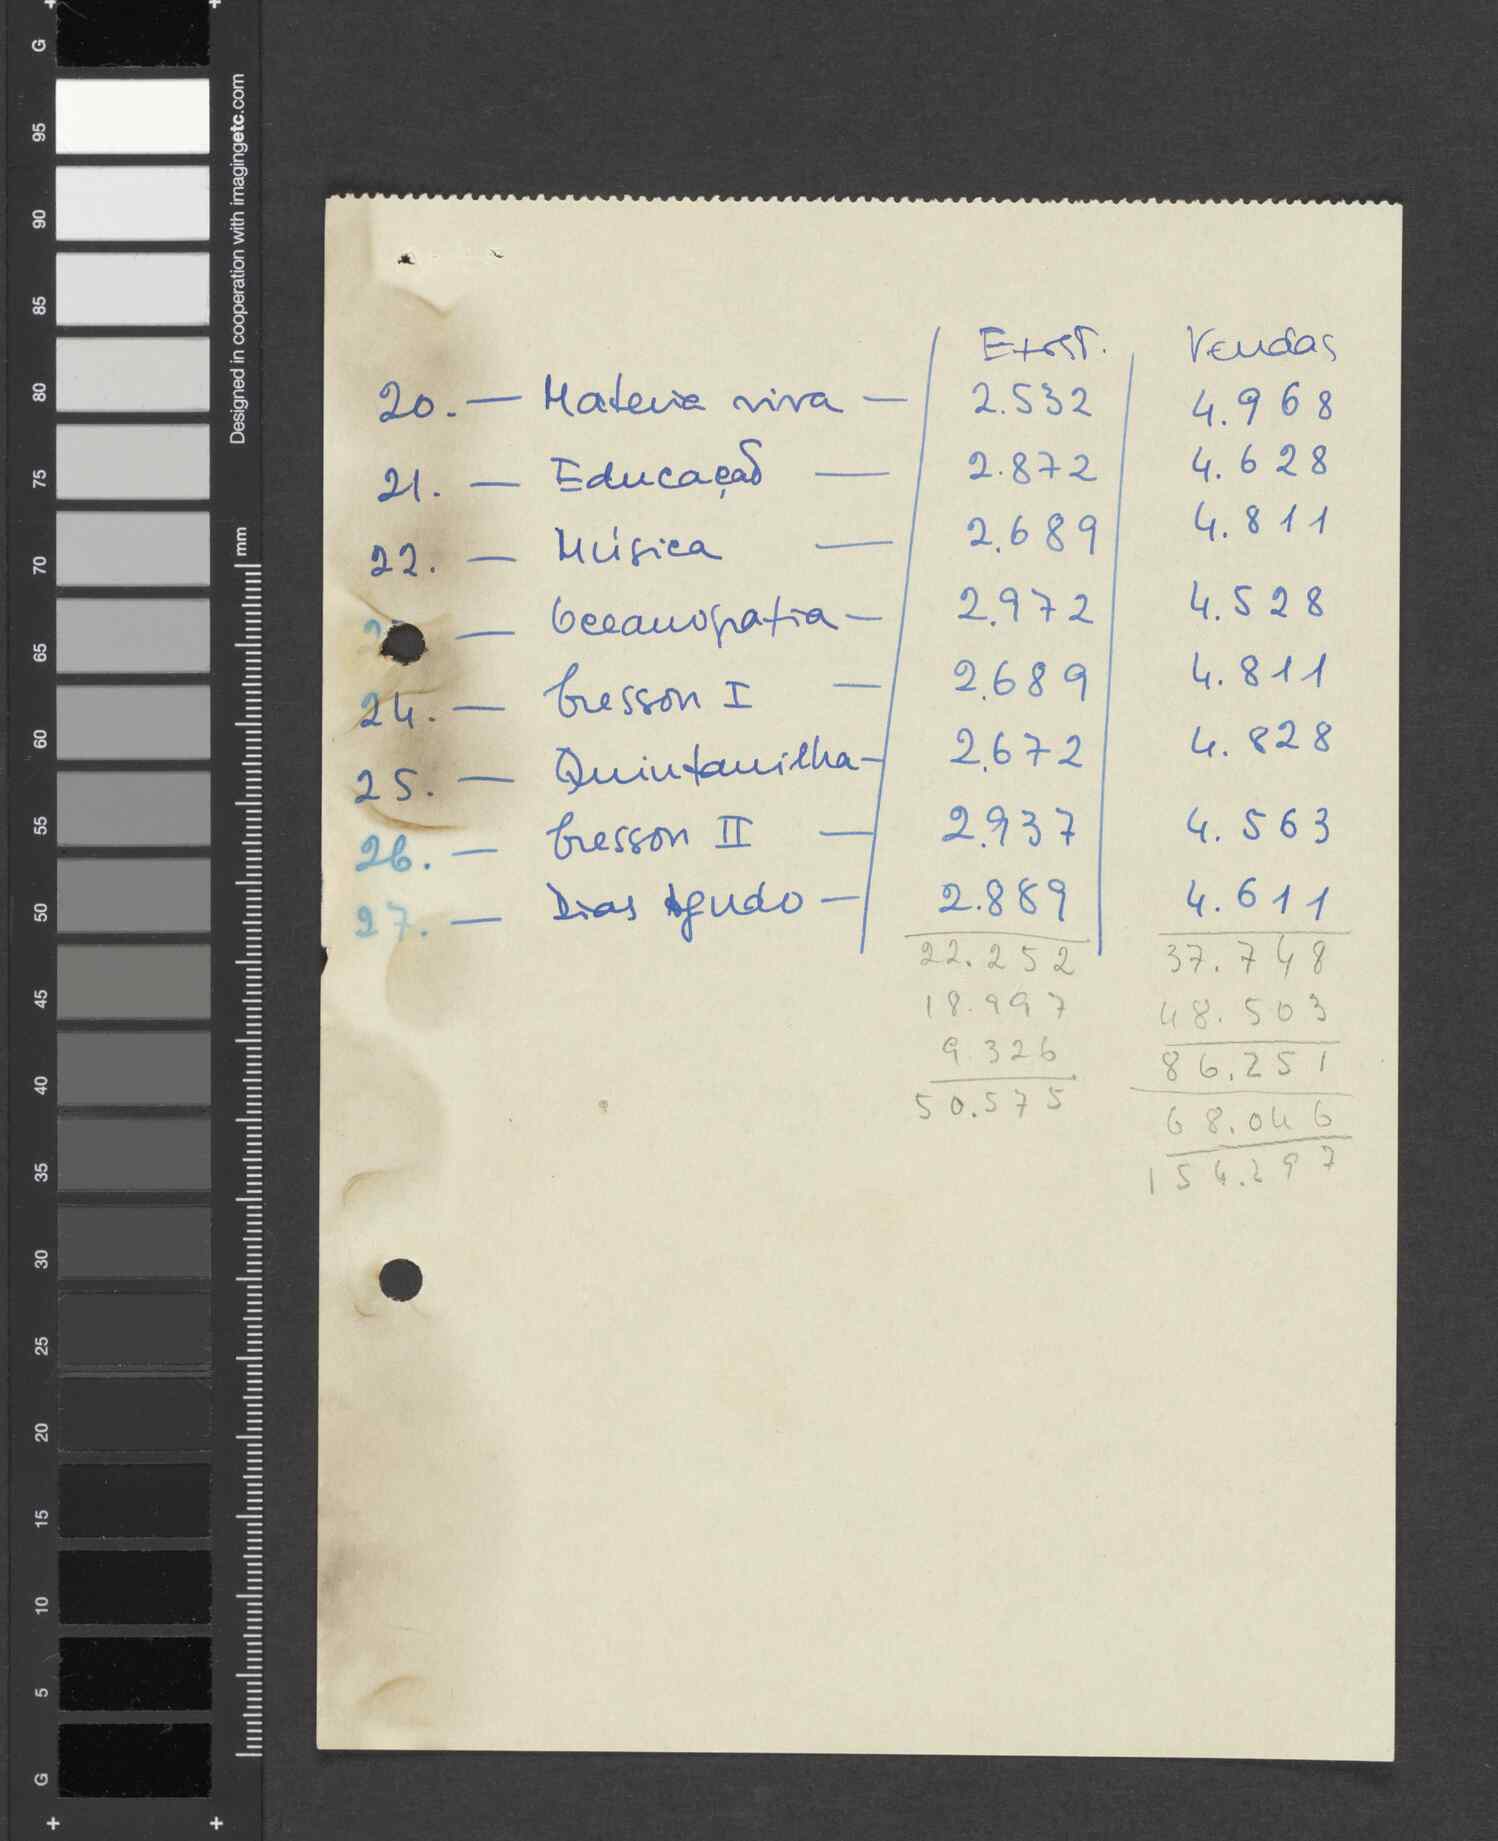 Exist. Vendas
20. — Materia viva — 2.532 4.968
21. — Educação — 2.872 4.628
22. — Música — 2.689 4.811
— Oceanografia — 2.972 4.528
24. — Cresson I — 2.689 4.811
25. — Quintanilha — 2.672 4.828
26. — Cresson II — 2.937 4.563
27. — Dias Agudo — 2.889 4.611
22.252 37.748
18.997 48.503
9.326 86.251
50.575 68.046
154.297
Designed in cooperation with imagingetc.com
mm
G
95
90
85
80
75
70
65
60
55
50
45
40
35
30
25
20
15
10
5
G